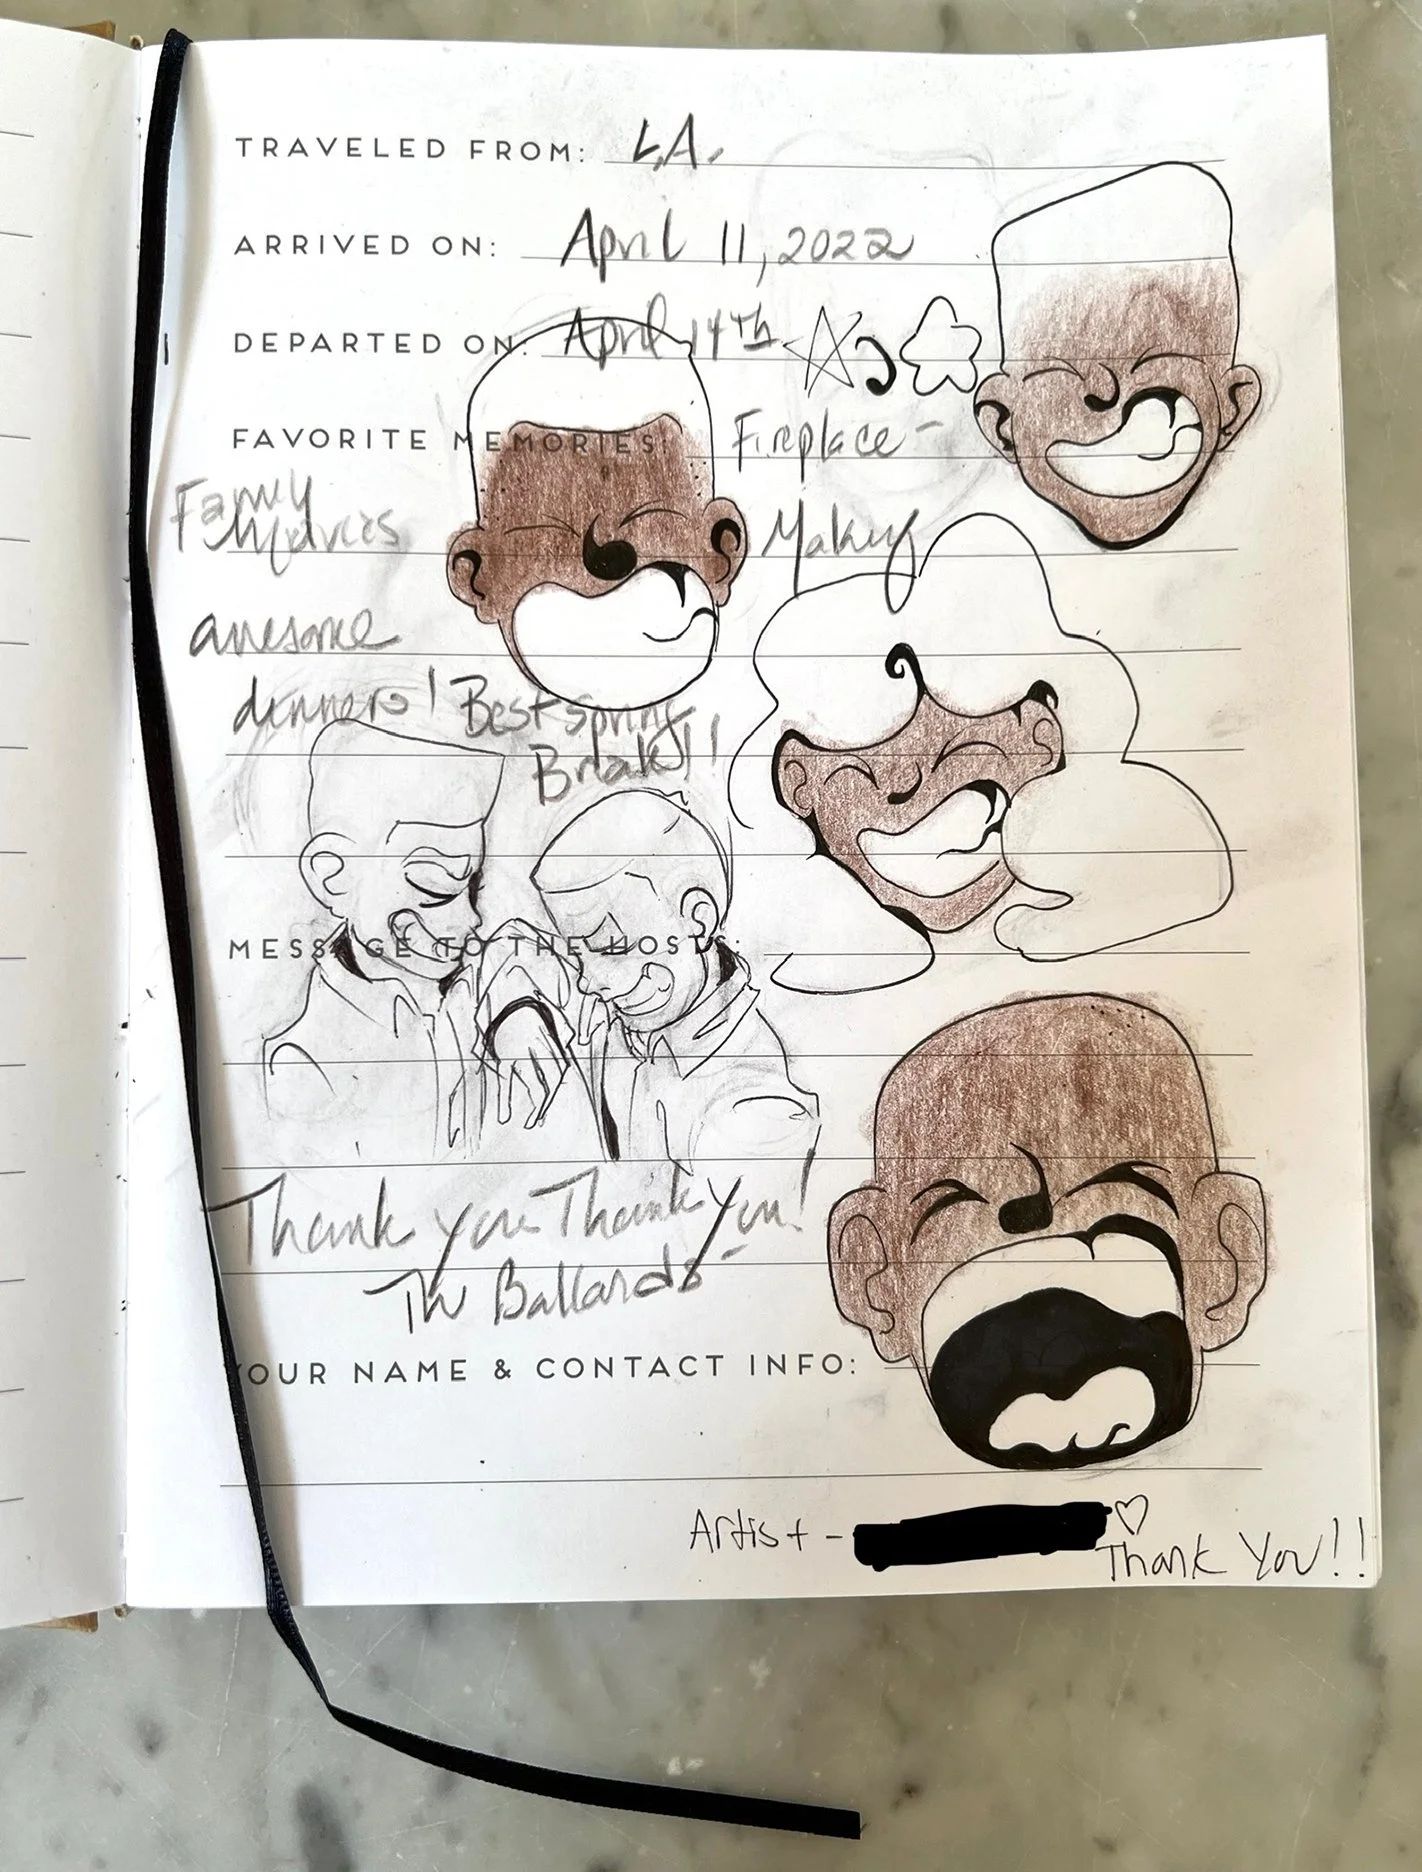 TRAVELED FROM: L.A.
ARRIVED ON: April 11, 2022
DEPARTED ON: April 14th
FAVORITE MEMORIES: Fireplace -
Family Movies Making
awesome
dinners! Best Spring
Break!!
MESSAGE TO THE HOSTS:
Thank you Thank you!
The Ballards -
YOUR NAME & CONTACT INFO:
Artist -
Thank You!!